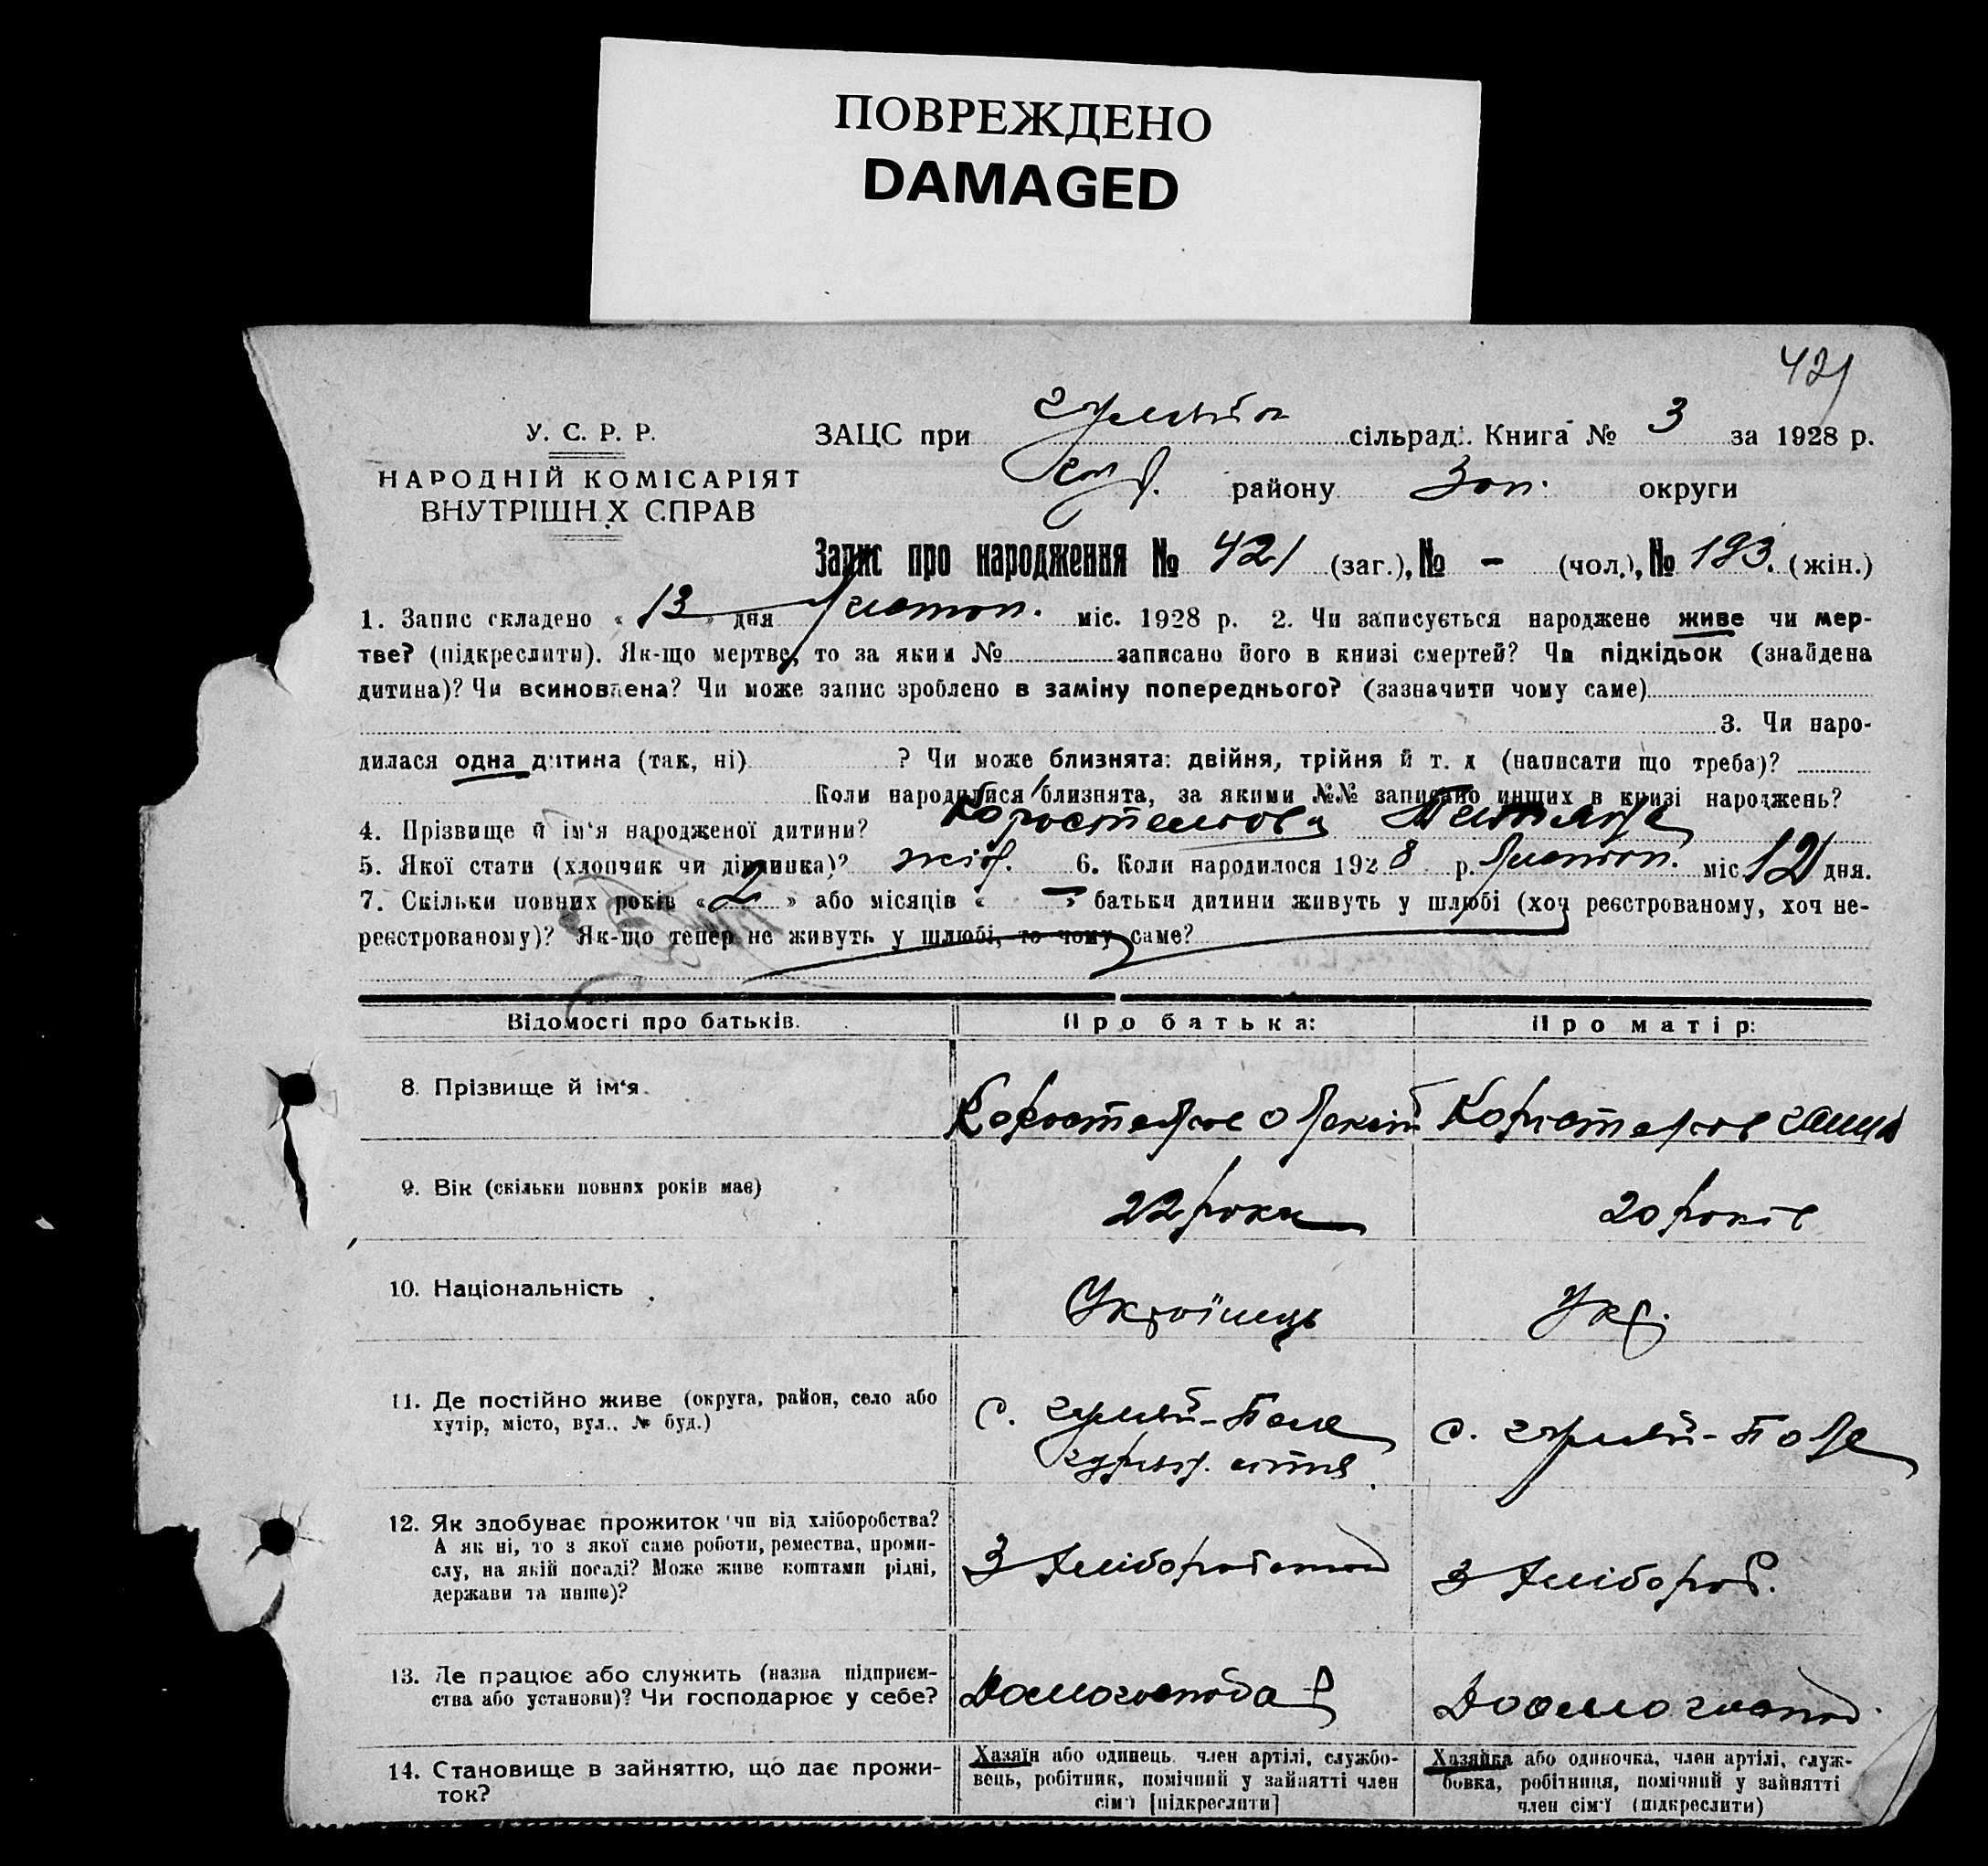 ПОВРЕЖДЕНО
DAMAGED
421
У. С. Р. Р.
НАРОДНІЙ КОМІСАРІЯТ
ВНУТРІШН Х СПРАВ
ЗАЦС при сільрад. Книга № 3 за 1928 р.
району Зап. округи
Запис про народження № 421 (заг.), № - (чол.), № 193. (жін.)
1. Запис складено « 13 » дня Листоп. міс. 1928 р. 2. Чи записується народжене живе чи мер-
тве? (підкреслити). Як-що мертве, то за яким № записано його в книзі смертей? Чи підкідьок (знайдена
дитина)? Чи всиновлена? Чи може запис зроблено в заміну попереднього? (зазначити чому саме)
3. Чи наро-
дилася одна дитина (так, ні) ? Чи може близнята: двійня, трійня й т. д (написати що треба)?
Коли народилися близнята, за якими №№ записано инщих в книзі народжень?
4. Прізвище й ім'я народженої дитини?
5. Якої стати (хлопчик чи дівчинка)? жін. 6. Коли народилося 1928 р. Листоп. міс. 12 дня.
7. Скільки повних років « 2 » або місяців « - » батьки дитини живуть у шлюбі (хоч реєстрованому, хоч не-
реєстрованому)? Як-що тепер не живуть у шлюбі, то чому саме?
Відомості про батьків.
Про батька:
Про матір:
8. Прізвище й ім'я.
9. Вік (скільки повних років має)
22 роки
20 років
10. Національність
Українець
Укр.
11. Де постійно живе (округа, район, село або
хутір, місто, вул., № буд.)
с. Гуляй-Поле
с. Гуляй-Поле
12. Як здобуває прожиток чи від хліборобства?
А як ні, то з якої саме роботи, ремества, проми-
слу, на якій посаді? Може живе коштами рідні,
держави та инше)?
З хліборобства
З хлібороб.
13. Де працює або служить (назва підприєм-
ства або установи)? Чи господарює у себе?
Домогоспода
Домогоспод.
14. Становище в зайняттю, що дає прожи-
ток?
Хазяїн або одинець, член артілі, службо-
вець, робітник, помічний у зайнятті член
сім'ї [підкреслити]
Хазяйка або одиночка, член артілі, служ-
бовка, робітниця, помічний у зайнятті
член сім'ї (підкреслити)